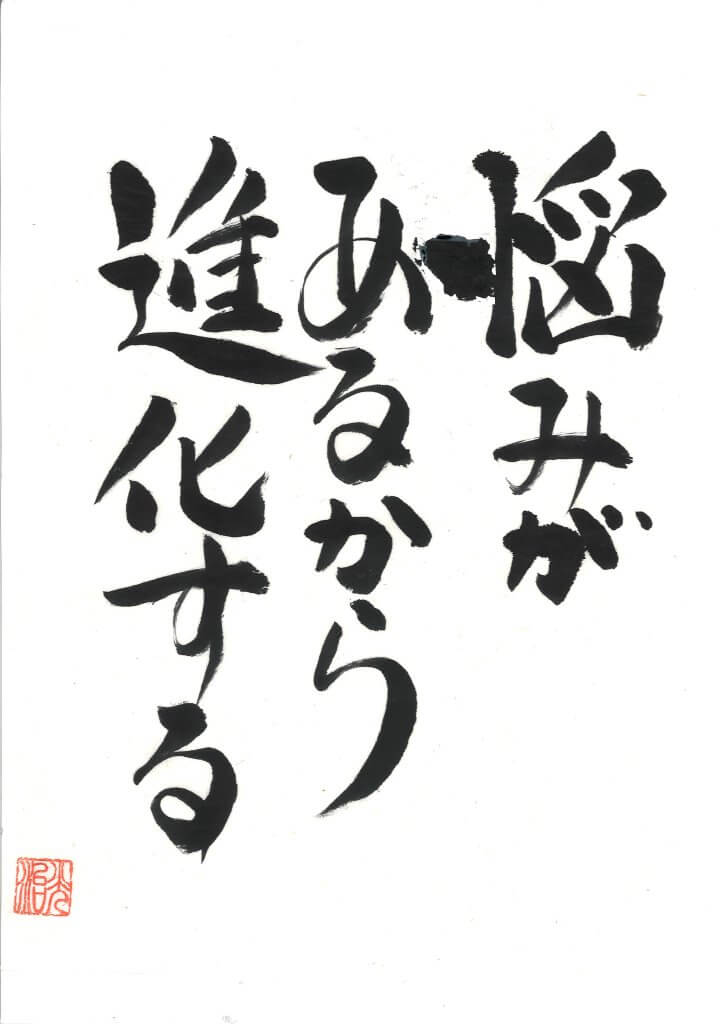 悩みが
あるから
進化する